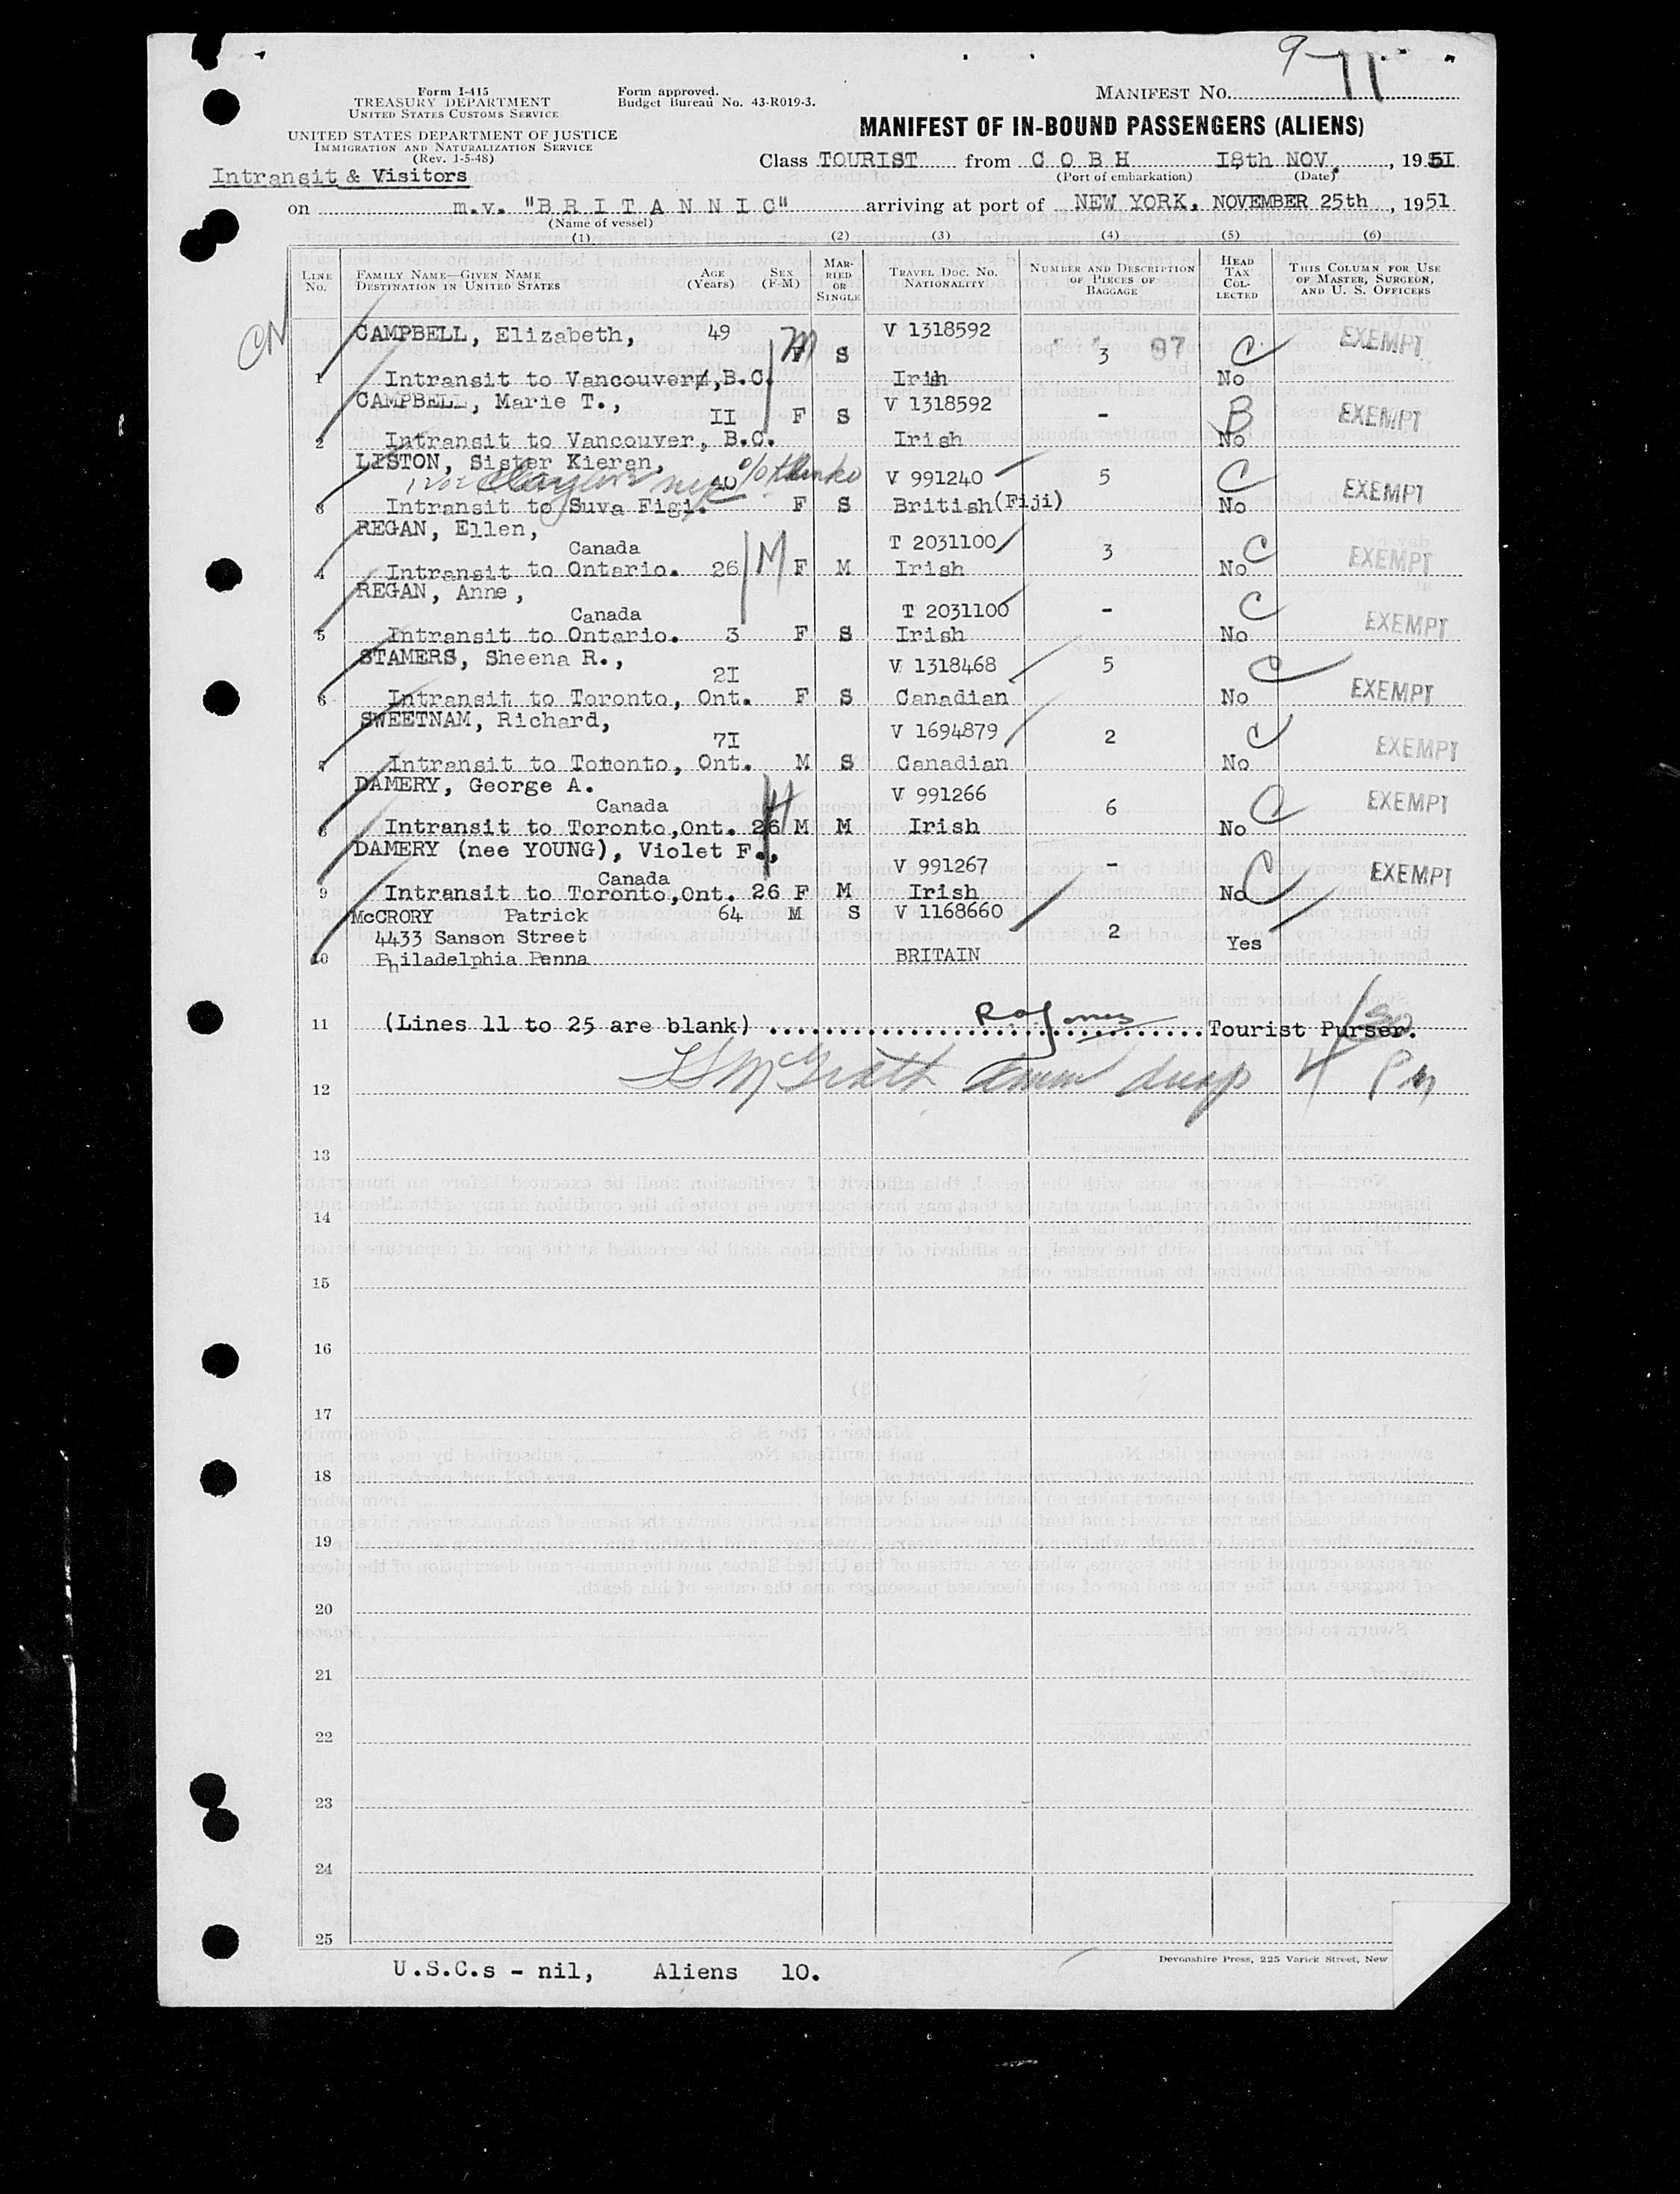 9-11
Form I-415
TREASURY DEPARTMENT
UNITED STATES CUSTOMS SERVICE
Form approved.
Budget Bureau No. 43-R019-3.
MANIFEST No.
UNITED STATES DEPARTMENT OF JUSTICE
IMMIGRATION AND NATURALIZATION SERVICE
(Rev. 1-5-48)
MANIFEST OF IN-BOUND PASSENGERS (ALIENS)
Intransit & Visitors
Class TOURIST from C O B H I8th NOV. , 1951
(Port of embarkation) (Date)
on m.v. "B R I T A N N I C" arriving at port of NEW YORK, NOVEMBER 25th , 1951
(Name of vessel)
(1) (2) (3) (4) (5) (6)
LINE No. FAMILY NAME—GIVEN NAME DESTINATION IN UNITED STATES AGE (Years) SEX (F-M) MARRIED OR SINGLE TRAVEL DOC. NO. NATIONALITY NUMBER AND DESCRIPTION OF PIECES OF BAGGAGE HEAD TAX COLLECTED THIS COLUMN FOR USE OF MASTER, SURGEON, AND U. S. OFFICERS
CM
CAMPBELL, Elizabeth, 49 M F S V 1318592 3 97 C EXEMPT
1 Intransit to Vancouver, B.C. Irish No
CAMPBELL, Marie T., II F S V 1318592 - B EXEMPT
2 Intransit to Vancouver, B.C. Irish No
LISTON, Sister Kieran, 40 V 991240 5 C EXEMPT
3 Intransit to Suva Figi. F S British (Fiji) No
REGAN, Ellen, T 2031100 3 C EXEMPT
Canada
4 Intransit to Ontario. 26 M F M Irish No
REGAN, Anne, T 2031100 - C EXEMPT
Canada
5 Intransit to Ontario. 3 F S Irish No
STAMERS, Sheena R., 2I V 1318468 5 C EXEMPT
6 Intransit to Toronto, Ont. F S Canadian No
SWEETNAM, Richard, 7I V 1694879 2 C EXEMPT
7 Intransit to Toronto, Ont. M S Canadian No
DAMERY, George A. V 991266 6 C EXEMPT
Canada
8 Intransit to Toronto,Ont. 26 M M Irish No
DAMERY (nee YOUNG), Violet F., V 991267 - C EXEMPT
Canada
9 Intransit to Toronto,Ont. 26 F M Irish No
McCRORY Patrick 64 M S V 1168660
4433 Sanson Street 2 Yes
10 Philadelphia Penna BRITAIN
11 (Lines 11 to 25 are blank) Tourist Purser.
12
13
14
15
16
17
18
19
20
21
22
23
24
25
U.S.C.s - nil, Aliens 10.
Devonshire Press, 225 Varick Street, New